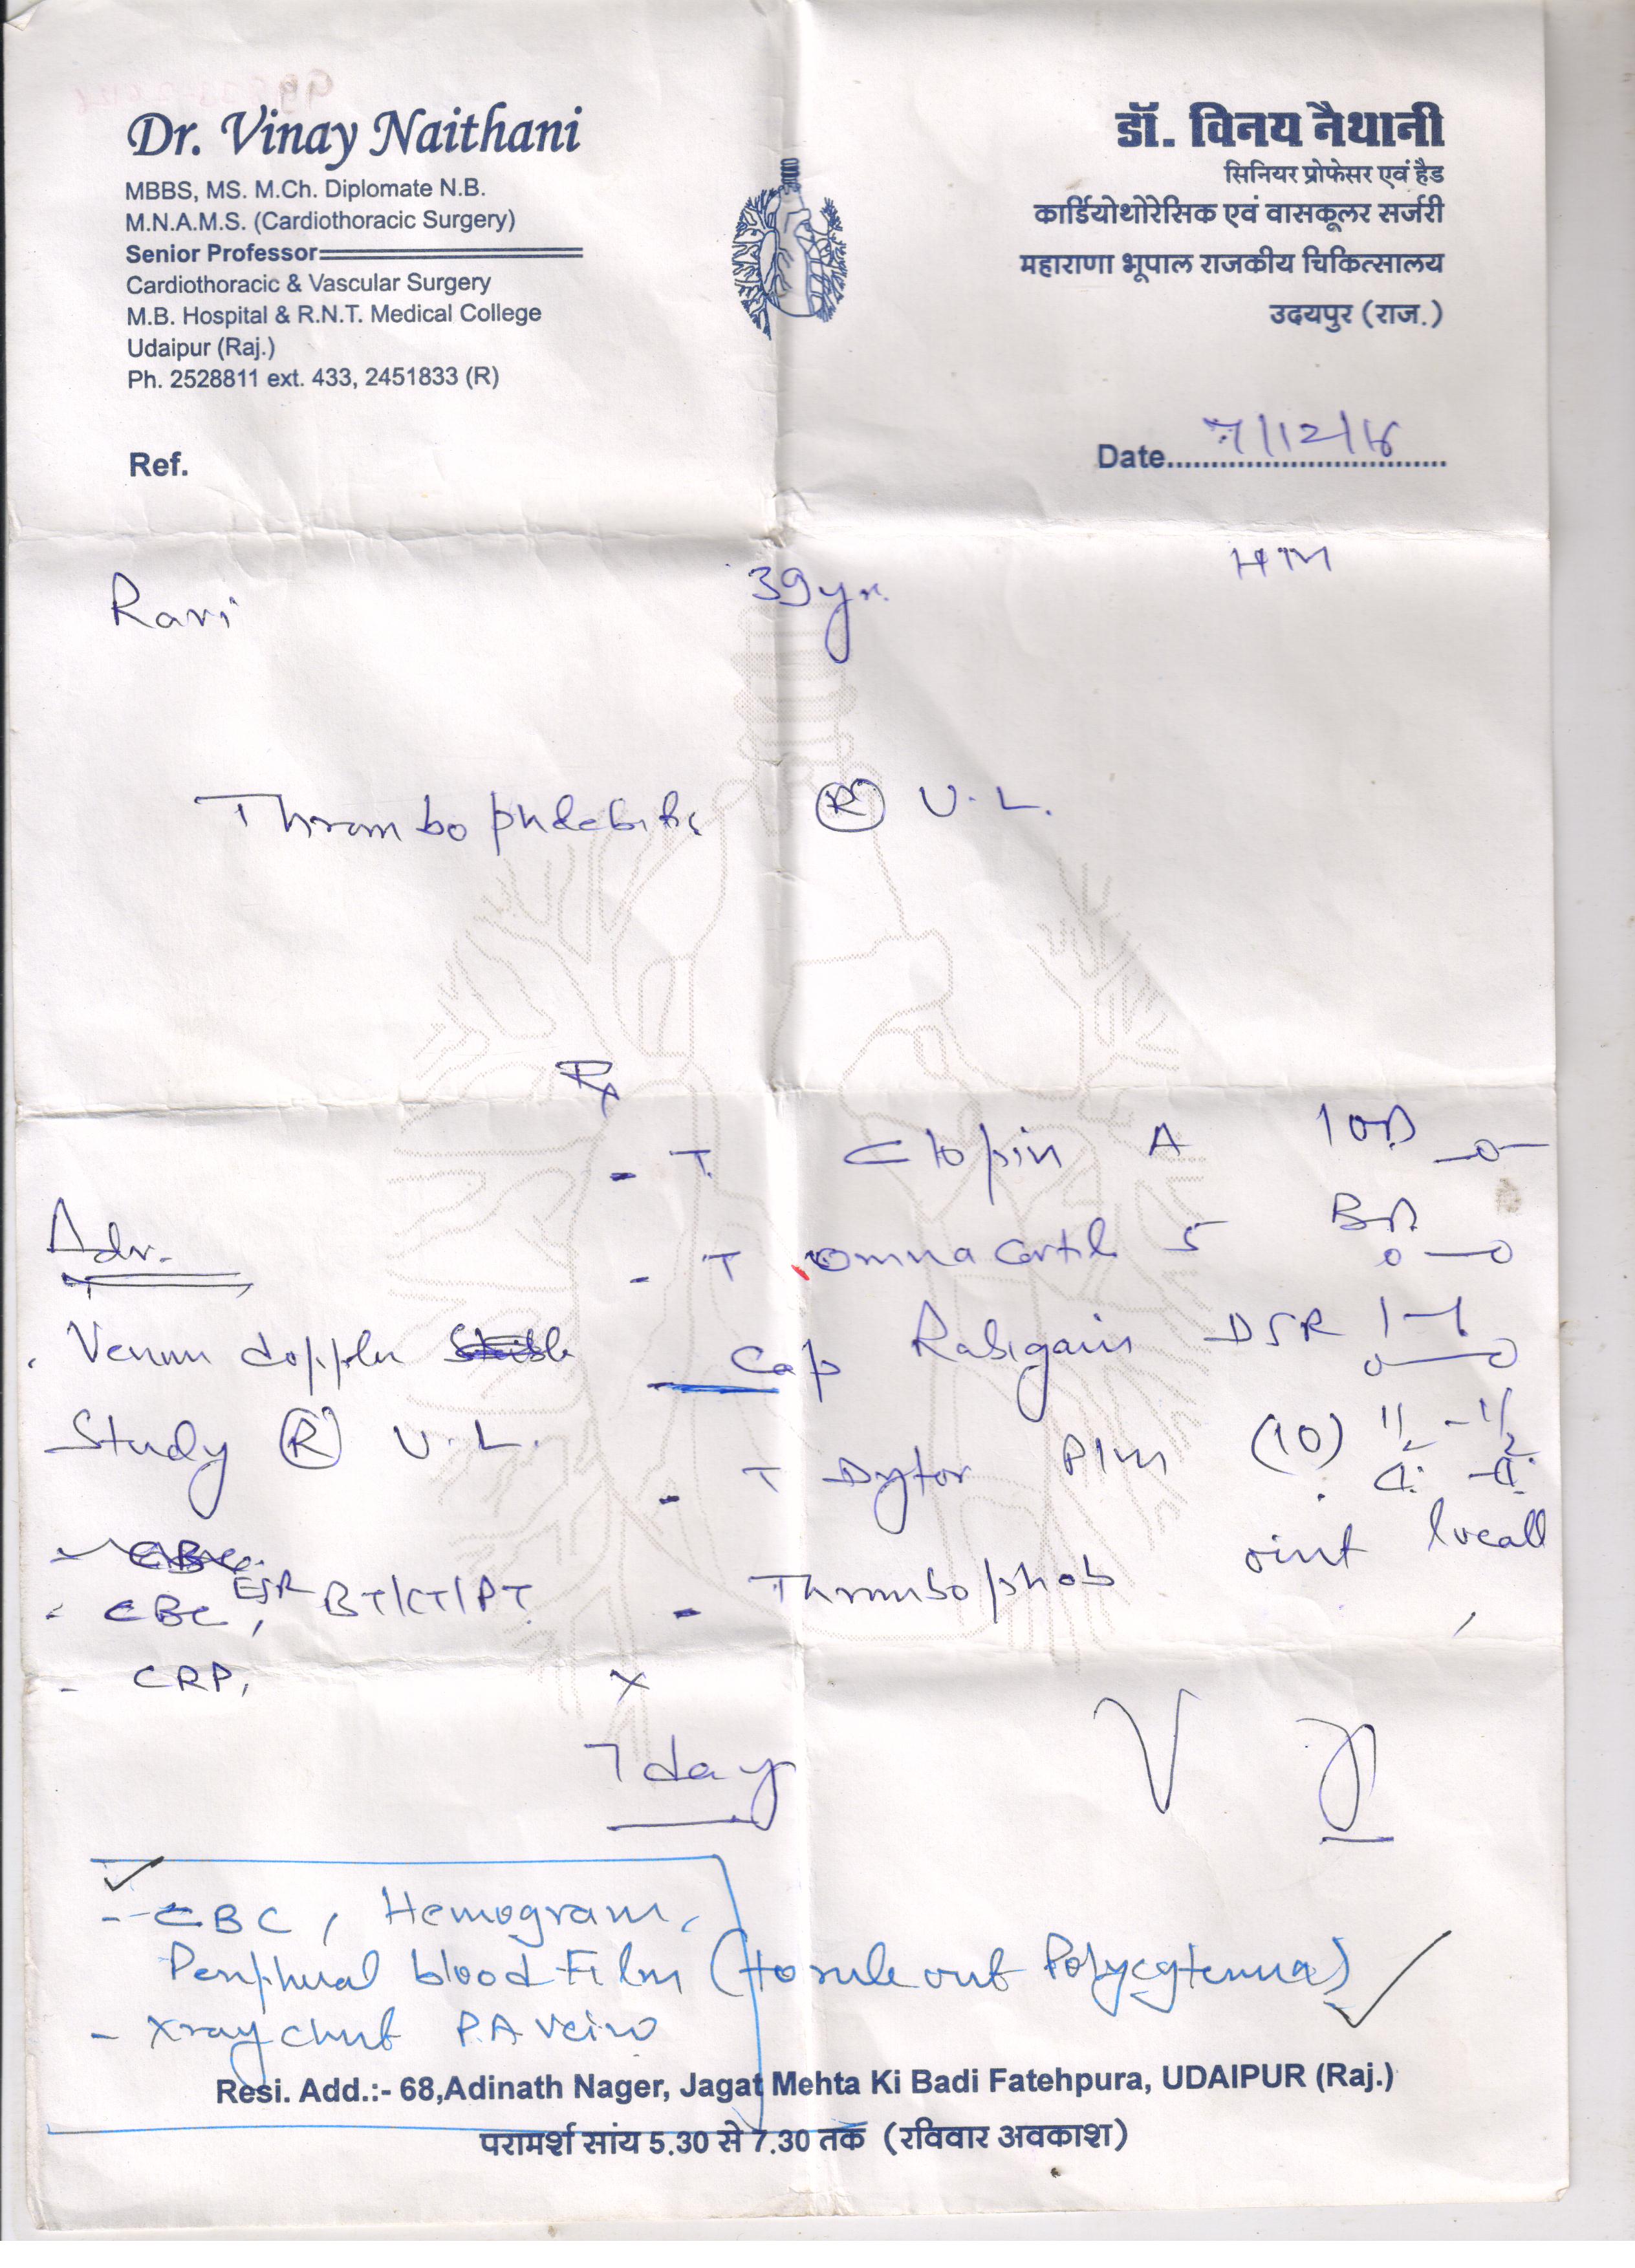 Dr. Vinay Naithani
MBBS, MS. M.Ch. Diplomate N.B.
M.N.A.M.S. (Cardiothoracic Surgery)
Senior Professor
Cardiothoracic & Vascular Surgery
M.B. Hospital & R.N.T. Medical College
Udaipur (Raj.)
Ph. 2528811 ext. 433, 2451833 (R)
डॉ. विनय नैथानी
सिनियर प्रोफेसर एवं हैड
कार्डियोथोरेसिक एवं वासकूलर सर्जरी
महाराणा भूपाल राजकीय चिकित्सालय
उदयपुर (राज.)
Ref.
Date 7/12/16
Ravi 39 yr.
Thrombophlebitis (R) U.L.
Rx
- T. Clopin A 1 OD
- T Omnacortil 5 BD
Cap Rabigain DSR 1-1
- T Dytor Plus (10) 1/2 - 1/2
- Thrombophob oint locall
Adv.
Venous doppler
Study (R) U.L.
- CBC, ESR BT/CT/PT
- CRP,
x
7 day
- CBC, Hemogram,
Peripheral blood Film (to rule out Polycytemia)
- Xray chest P.A veiw
Resi. Add.:- 68,Adinath Nager, Jagat Mehta Ki Badi Fatehpura, UDAIPUR (Raj.)
परामर्श सांय 5.30 से 7.30 तक (रविवार अवकाश)